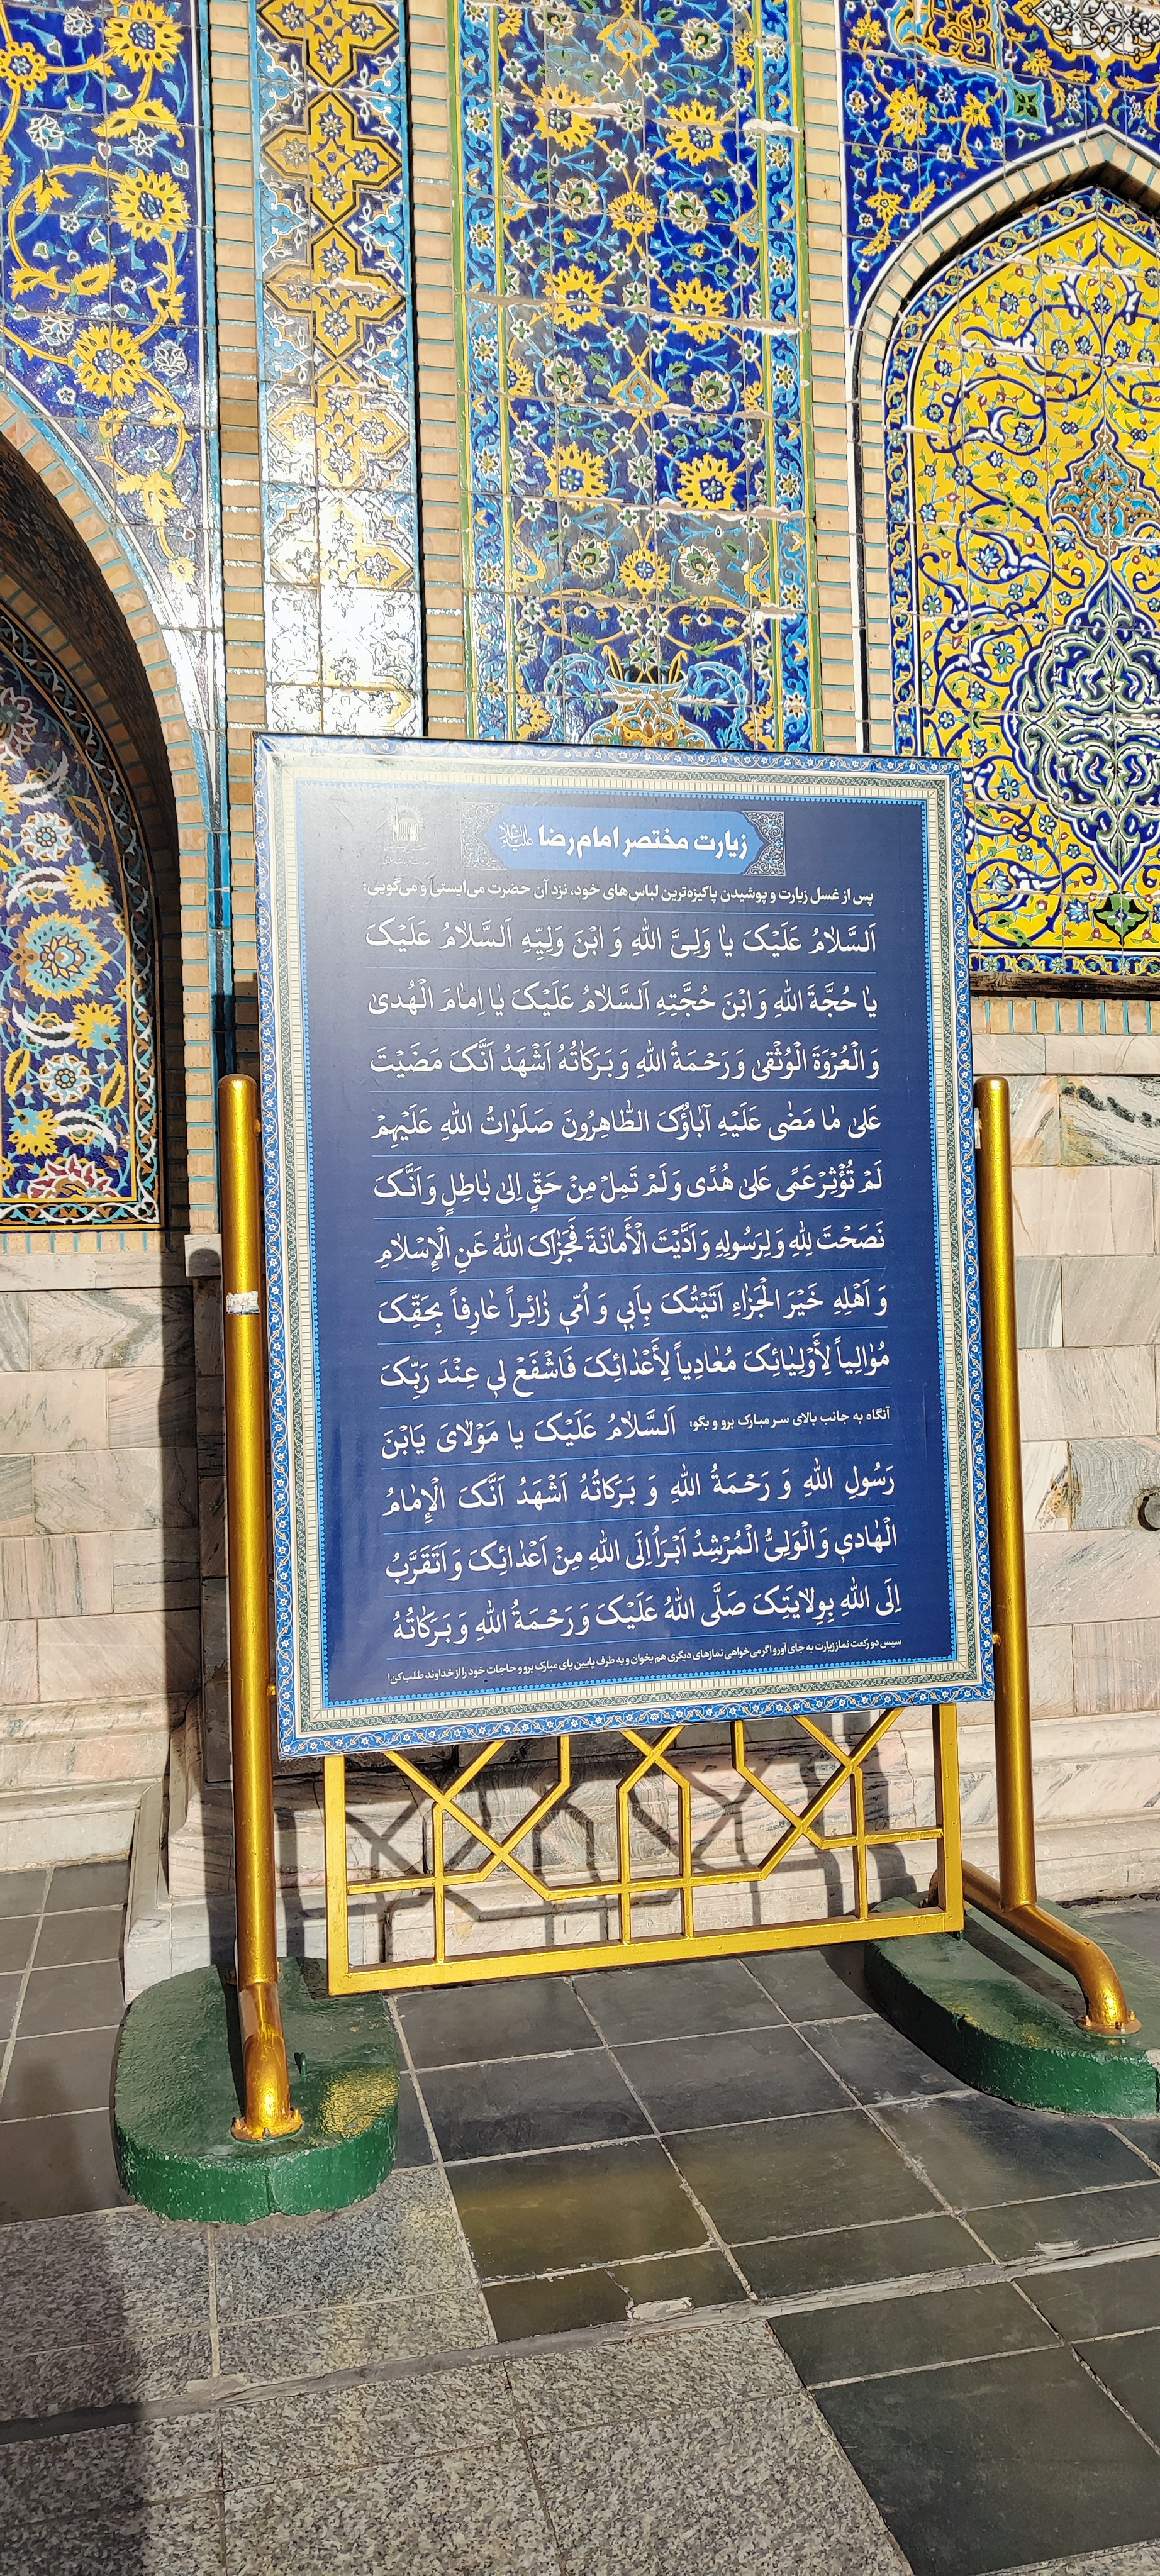 زیارت مختصر امام رضا علیه‌السلام
پس از غسل زیارت و پوشیدن پاکیزه‌ترین لباس‌های خود، نزد آن حضرت می‌ایستی و می‌گویی:
اَلسَّلامُ عَلَیْکَ یا وَلِیَّ اللهِ وَ ابْنَ وَلِیِّهِ اَلسَّلامُ عَلَیْکَ
یا حُجَّةَ اللهِ وَ ابْنَ حُجَّتِهِ اَلسَّلامُ عَلَیْکَ یا اِمامَ الْهُدیٰ
وَ الْعُرْوَةَ الْوُثْقیٰ وَ رَحْمَةُ اللهِ وَ بَرَکاتُهُ اَشْهَدُ اَنَّکَ مَضَیْتَ
عَلیٰ ما مَضیٰ عَلَیْهِ آباؤُکَ الطّاهِرُونَ صَلَواتُ اللهِ عَلَیْهِمْ
لَمْ تُؤْثِرْ عَمًی عَلیٰ هُدًی وَ لَمْ تَمِلْ مِنْ حَقٍّ اِلیٰ باطِلٍ وَ اَنَّکَ
نَصَحْتَ لِلّهِ وَ لِرَسُولِهِ وَ اَدَّیْتَ الْأَمانَةَ فَجَزاکَ اللهُ عَنِ الْإِسْلامِ
وَ اَهْلِهِ خَیْرَ الْجَزاءِ اَتَیْتُکَ بِاَبی وَ اُمّی زائِراً عارِفاً بِحَقِّکَ
مُوالِیاً لِأَوْلِیائِکَ مُعادِیاً لِأَعْدائِکَ فَاشْفَعْ لی عِنْدَ رَبِّکَ
آنگاه به جانب بالای سر مبارک برو و بگو: اَلسَّلامُ عَلَیْکَ یا مَوْلایَ یَابْنَ
رَسُولِ اللهِ وَ رَحْمَةُ اللهِ وَ بَرَکاتُهُ اَشْهَدُ اَنَّکَ الْإِمامُ
الْهادی وَ الْوَلِیُّ الْمُرْشِدُ اَبْرَأُ اِلَی اللهِ مِنْ اَعْدائِکَ وَ اَتَقَرَّبُ
اِلَی اللهِ بِوِلایَتِکَ صَلَّی اللهُ عَلَیْکَ وَ رَحْمَةُ اللهِ وَ بَرَکاتُهُ
سپس دو رکعت نماز زیارت به جای آور و اگر می‌خواهی نمازهای دیگری هم بخوان و به طرف پایین پای مبارک برو و حاجات خود را از خداوند طلب کن!